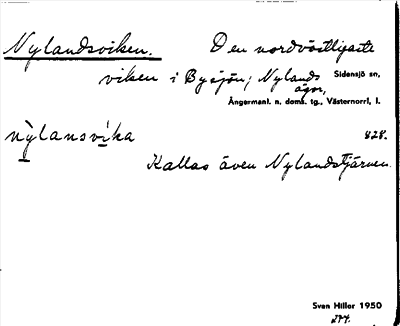 Nylandsviken. Den nordvästligaste
viken i Bysjön; Nylands Sidensjö sn,
ägor,
Ångermanl. n. doms. tg., Västernorrl, l.
nỳlansvika 428.
Kallas även Nylandstjärnen.
Sven Hillor 1950